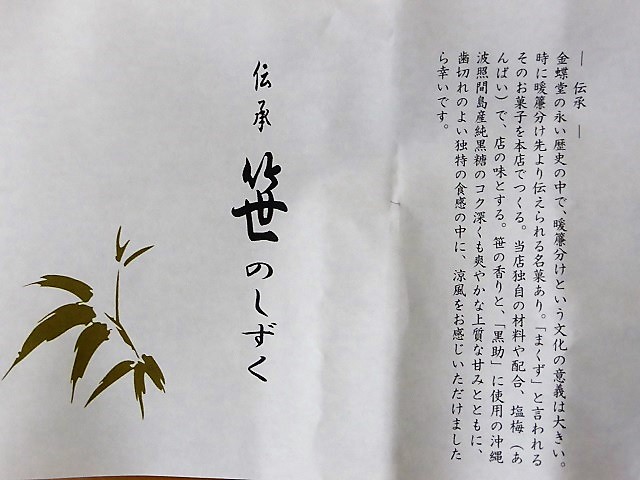 ― 伝承 ―
金蝶堂の永い歴史の中で、暖簾分けという文化の意義は大きい。
時に暖簾分け先より伝えられる名菓あり。「まくず」と言われる
そのお菓子を本店でつくる。当店独自の材料や配合、塩梅（あ
んばい）で、店の味とする。笹の香りと、「黒助」に使用の沖縄
波照間島産純黒糖のコク深くも爽やかな上質な甘みとともに、
歯切れのよい独特の食感の中に、涼風をお感じいただけました
ら幸いです。
伝承 笹のしずく